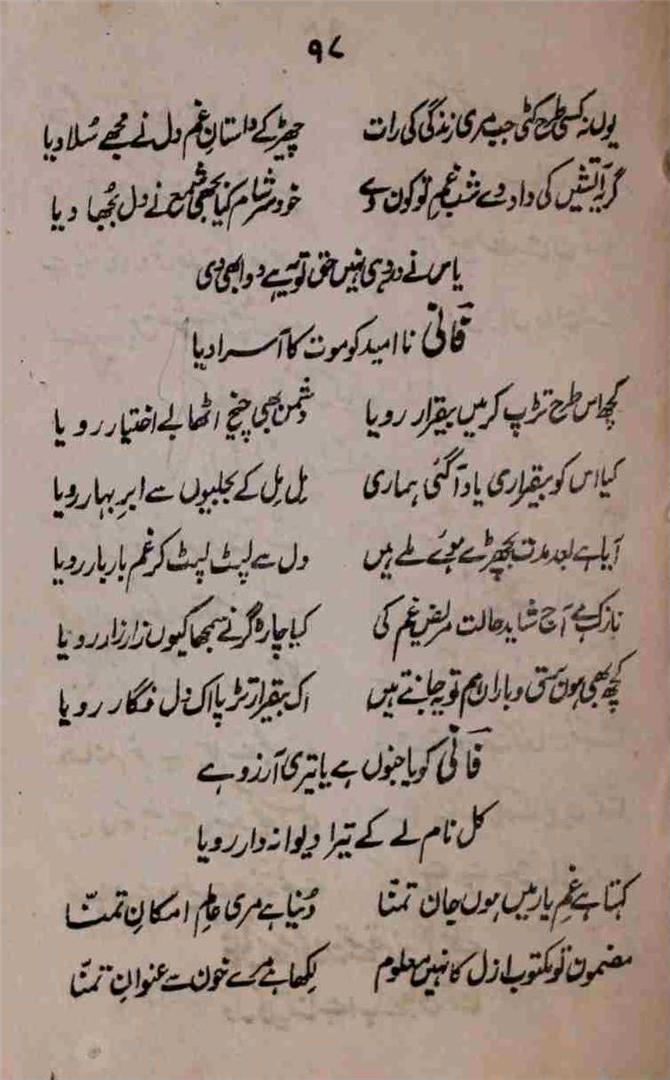 ۹۸
یوں نہ کسی طرح کٹی جب مری زندگی کی رات چھیڑ کے داستانِ غم دل نے مجھے سُلا دیا
گریۂ آتشیں کی داد دے شبِ غم تو کون دے خود سرِ شام کیا بجھی شمع نے دل بُجھا دیا
یاس نے درد ہی نہیں حق تو یہ ہے دوا بھی دی
فانی نا امید کو موت کا آسرا دیا
کچھ اس طرح تڑپ کر میں بیقرار رویا دشمن بھی چیخ اٹھا بے اختیار رویا
کیا اس کو بیقراری یاد آگئی ہماری مِل مِل کے بجلیوں سے ابرِ بہار رویا
آیا ہے بعد مدت بچھڑے ہوئے ملے ہیں دل سے لپٹ لپٹ کر غم بار بار رویا
نازک ہے آج شاید حالت مریض غم کی کیا چارہ گر نے سمجھا کیوں زار زار رویا
کچھ بھی ہوں برق و باراں ہم تو یہ جانتے ہیں اک بیقرار تڑپا اک دل فگار رویا
فانی کو یا جنوں ہے یا تیری آرزو ہے
کل نام لے کے تیرا دیوانہ وار رویا
کہتا ہے غمِ یار میں ہوں جان تمنّا دُنیا ہے مری عالمِ امکانِ تمنّا
مضمون تو مکتوب ازل کا نہیں معلوم لکھا ہے مرے خون سے عنوانِ تمنّا